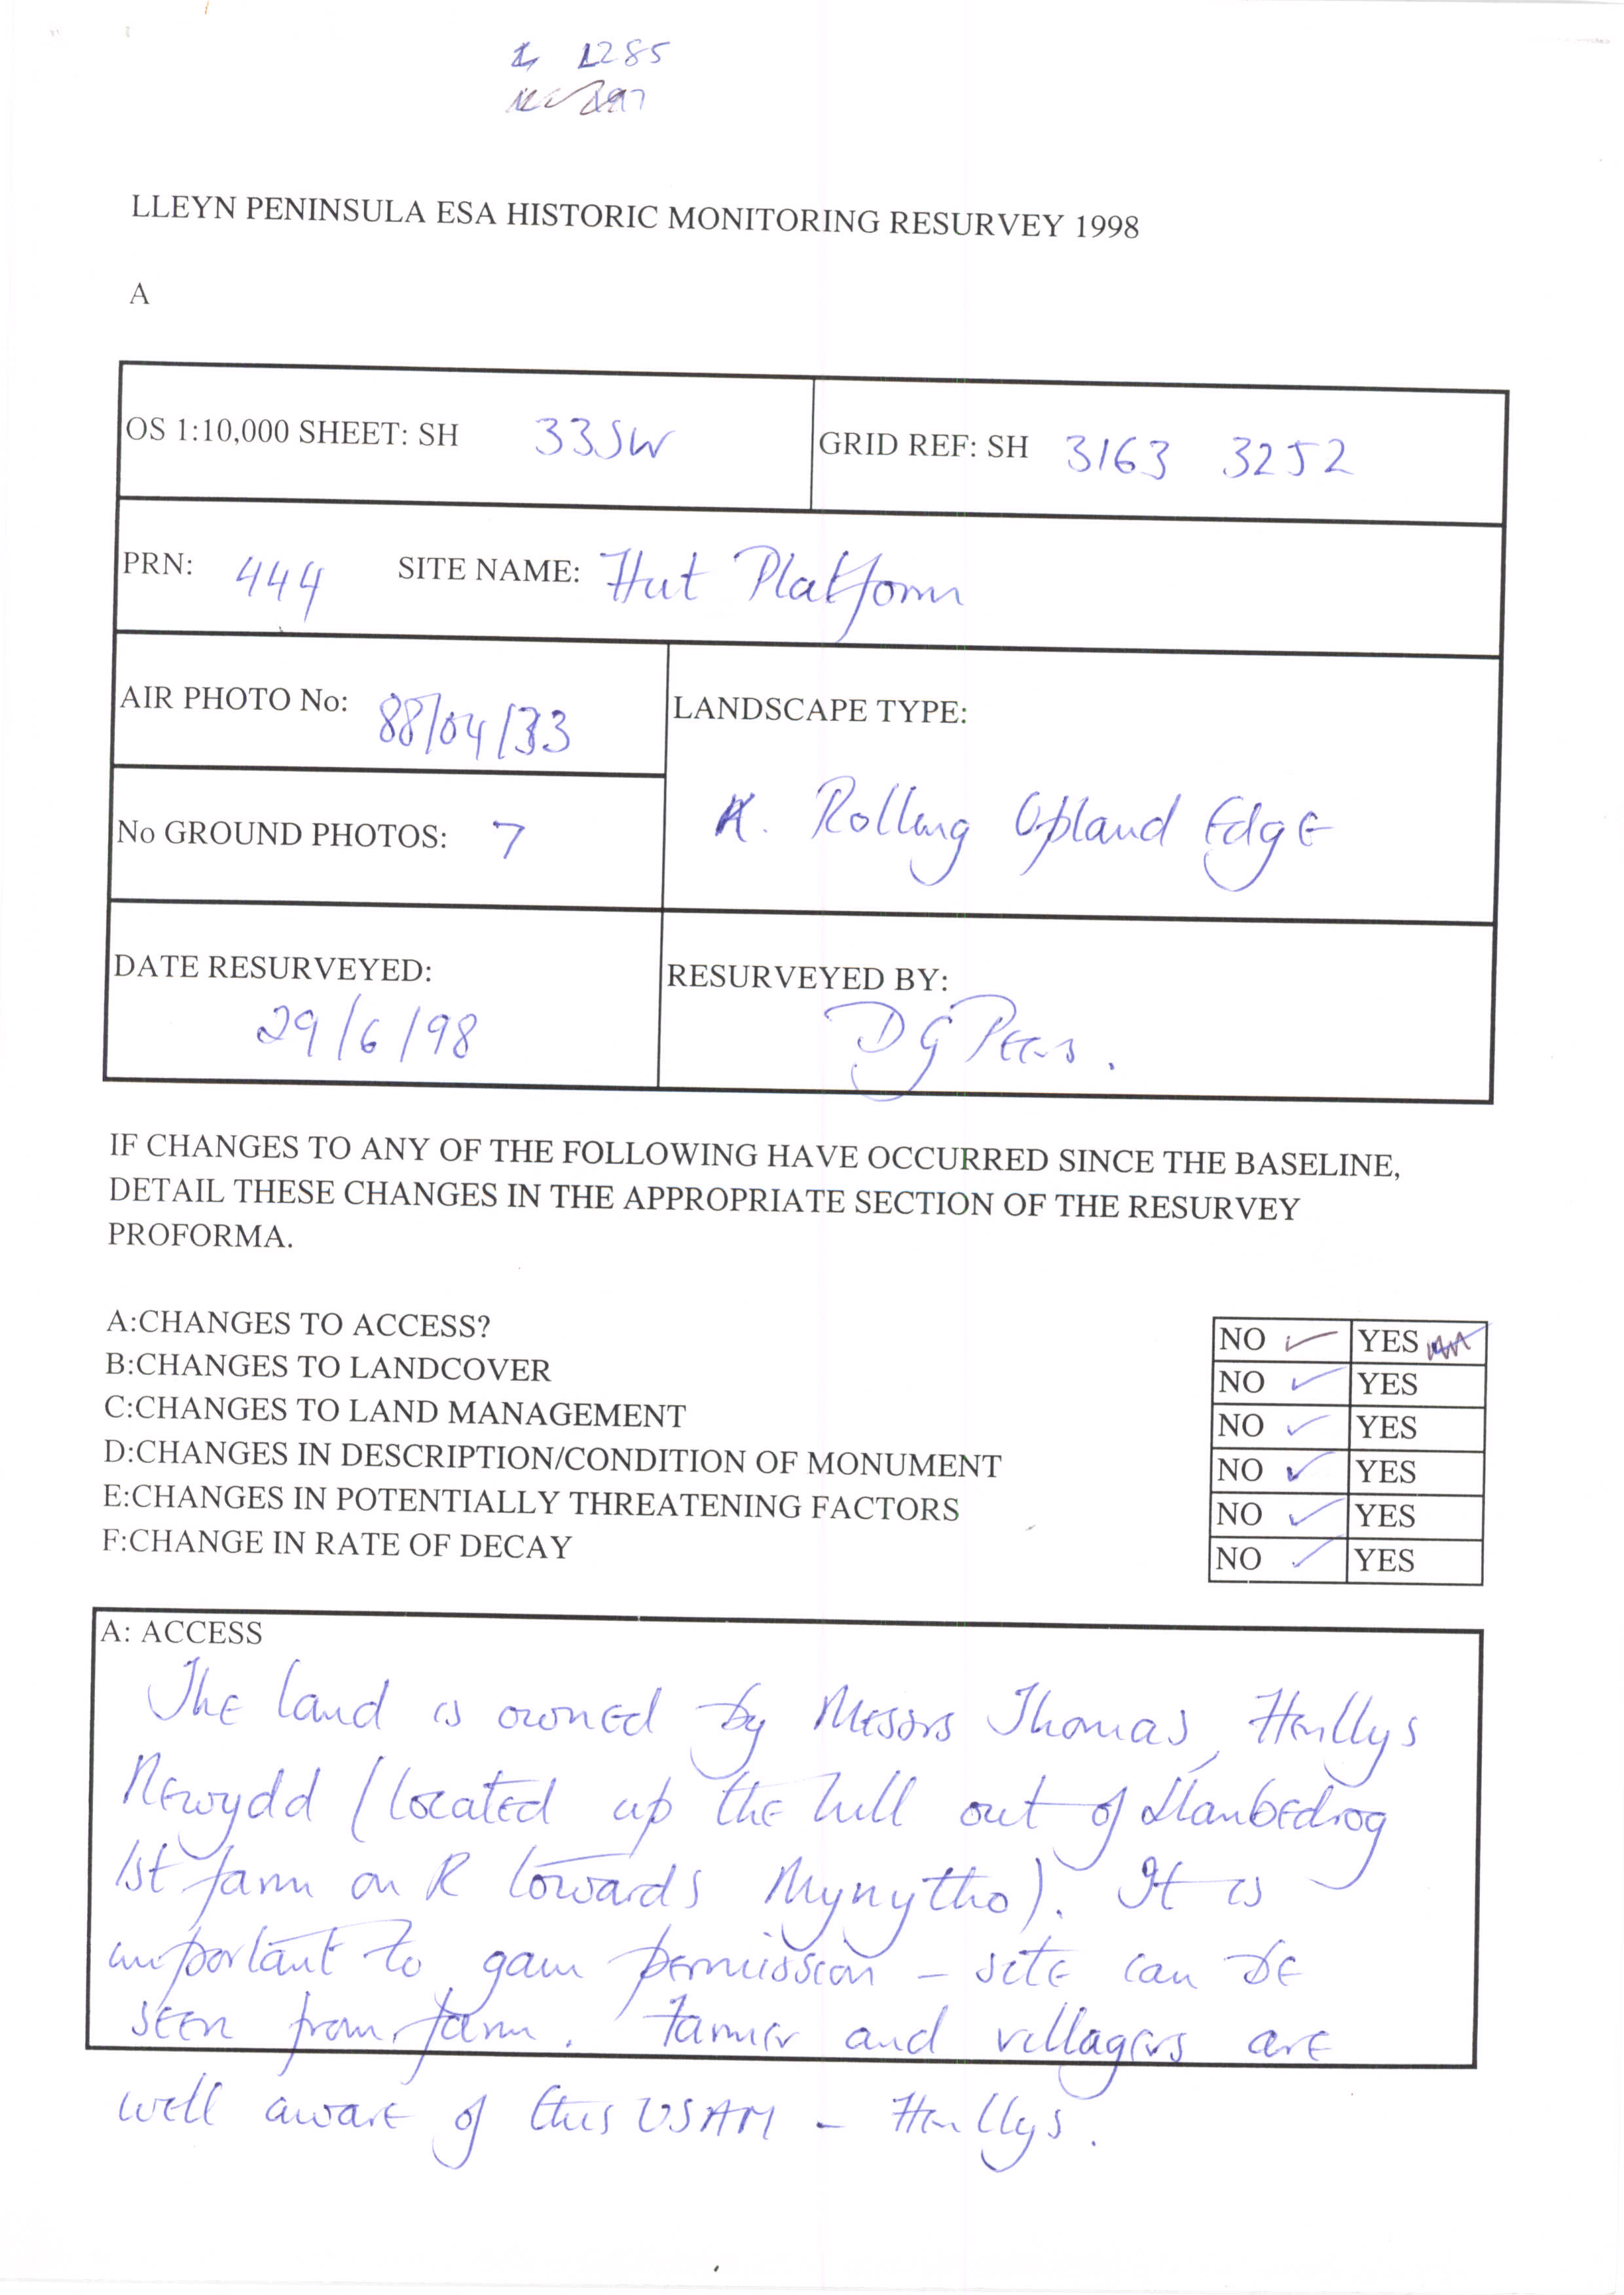 L285
LLEYN PENINSULA ESA HISTORIC MONITORING RESURVEY 1998
A
OS 1:10,000 SHEET: SH 33SW GRID REF: SH 3163 3252
PRN: 444 SITE NAME: Hut Platform
AIR PHOTO No: 88/04/33
LANDSCAPE TYPE:
A. Rolling Upland Edge
No GROUND PHOTOS: 7
DATE RESURVEYED:
29/6/98
RESURVEYED BY:
D G
IF CHANGES TO ANY OF THE FOLLOWING HAVE OCCURRED SINCE THE BASELINE,
DETAIL THESE CHANGES IN THE APPROPRIATE SECTION OF THE RESURVEY
PROFORMA.
A:CHANGES TO ACCESS? NO ✓ YES
B:CHANGES TO LANDCOVER NO ✓ YES
C:CHANGES TO LAND MANAGEMENT NO ✓ YES
D:CHANGES IN DESCRIPTION/CONDITION OF MONUMENT NO ✓ YES
E:CHANGES IN POTENTIALLY THREATENING FACTORS NO ✓ YES
F:CHANGE IN RATE OF DECAY NO ✓ YES
A: ACCESS
The land is owned by Messrs Thomas, Henllys
Newydd (located up the hill out of Llanbedrog
1st farm on R towards Mynytho). It is
important to gain permission - site can be
seen from farm. Farmer and villagers are
well aware of this USAM - Henllys.